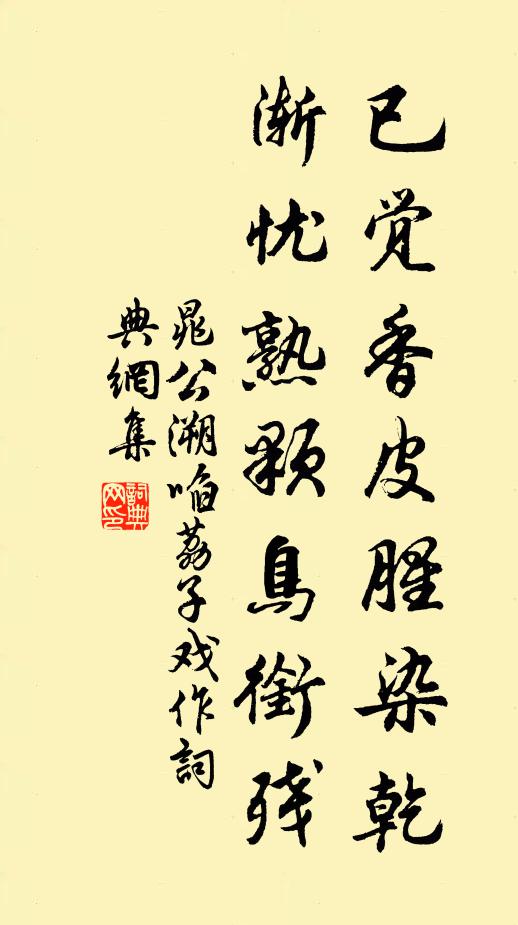 已觉香皮腥染乾
渐忧熟颗鸟衔残
晁公溯啗荔子戏作詞
典網集
詞典网印